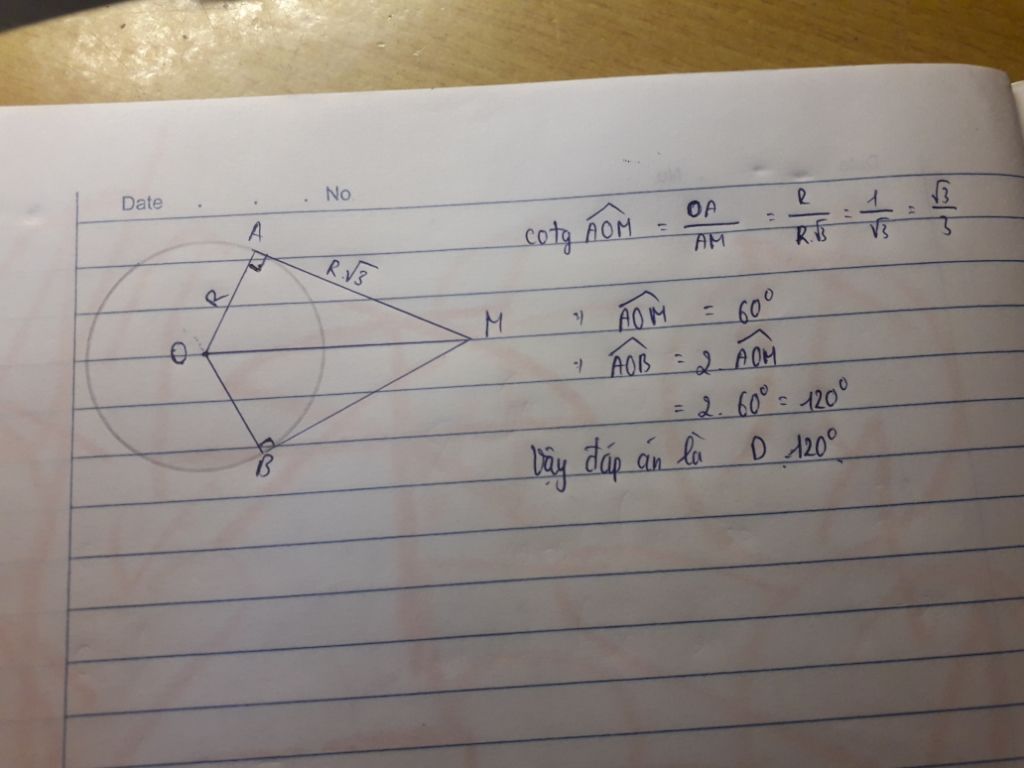 Date . . . No
A
R
R.√3
O
M
B
cotg AOM = OA/AM = R/R.√3 = 1/√3 = √3/3
AOM = 60⁰
AOB = 2. AOM
= 2. 60⁰ = 120⁰
Vậy đáp án là D 120⁰.